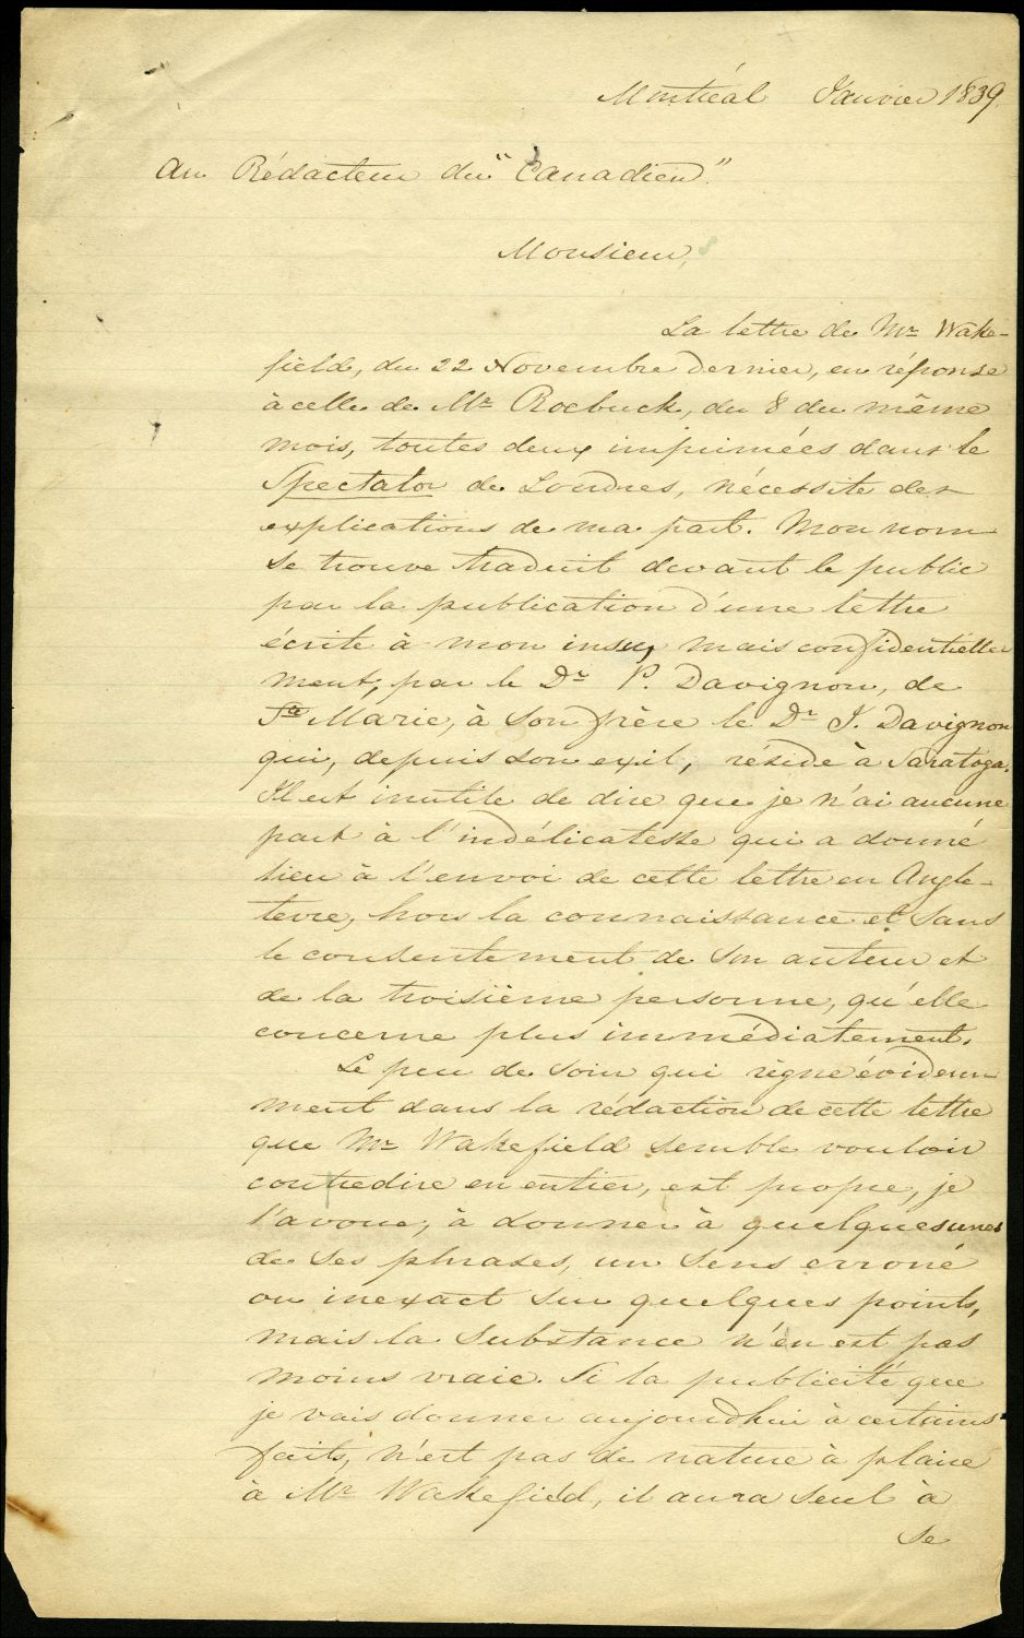 Montréal Janvier 1839.
Au Rédacteur du "Canadien".
Monsieur,
La lettre de Mr Wake-
field, du 22 Novembre dernier, en réponse
à celle de Mr Roebuck, du 8 du même
mois, toutes deux imprimées dans le
Spectator de Londres, nécessite des
explications de ma part. Mon nom
se trouve traduit devant le public
par la publication d'une lettre
écrite à mon insu, mais confidentielle
ment, par le Dr P. Davignon, de
Ste Marie, à son frère le Dr J. Davignon
qui, depuis son exil, réside à Saratoga.
Il est inutile de dire que je n'ai aucune
part à l'indélicatesse qui a donné
lieu à l'envoi de cette lettre en Angle-
terre, hors la connaissance et sans
le consentement de son auteur et
de la troisième personne, qu'elle
concerne plus immédiatement.
Le peu de soin qui règne évidem
ment dans la rédaction de cette lettre
que Mr Wakefield semble vouloir
contredire en entier, est propre, je
l'avoue, à donner à quelquesunes
de ses phrases, un sens erroné
ou inexact sur quelques points,
mais la substance n'en est pas
moins vraie. Si la publicité que
je vais donner aujourdhui à certains
faits, n'est pas de nature à plaire
à Mr Wakefield, il aura seul à
se